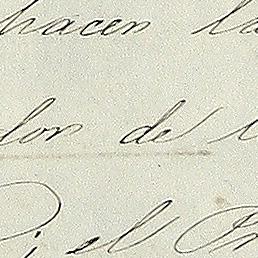 hacen la
lor de l
i el Pr